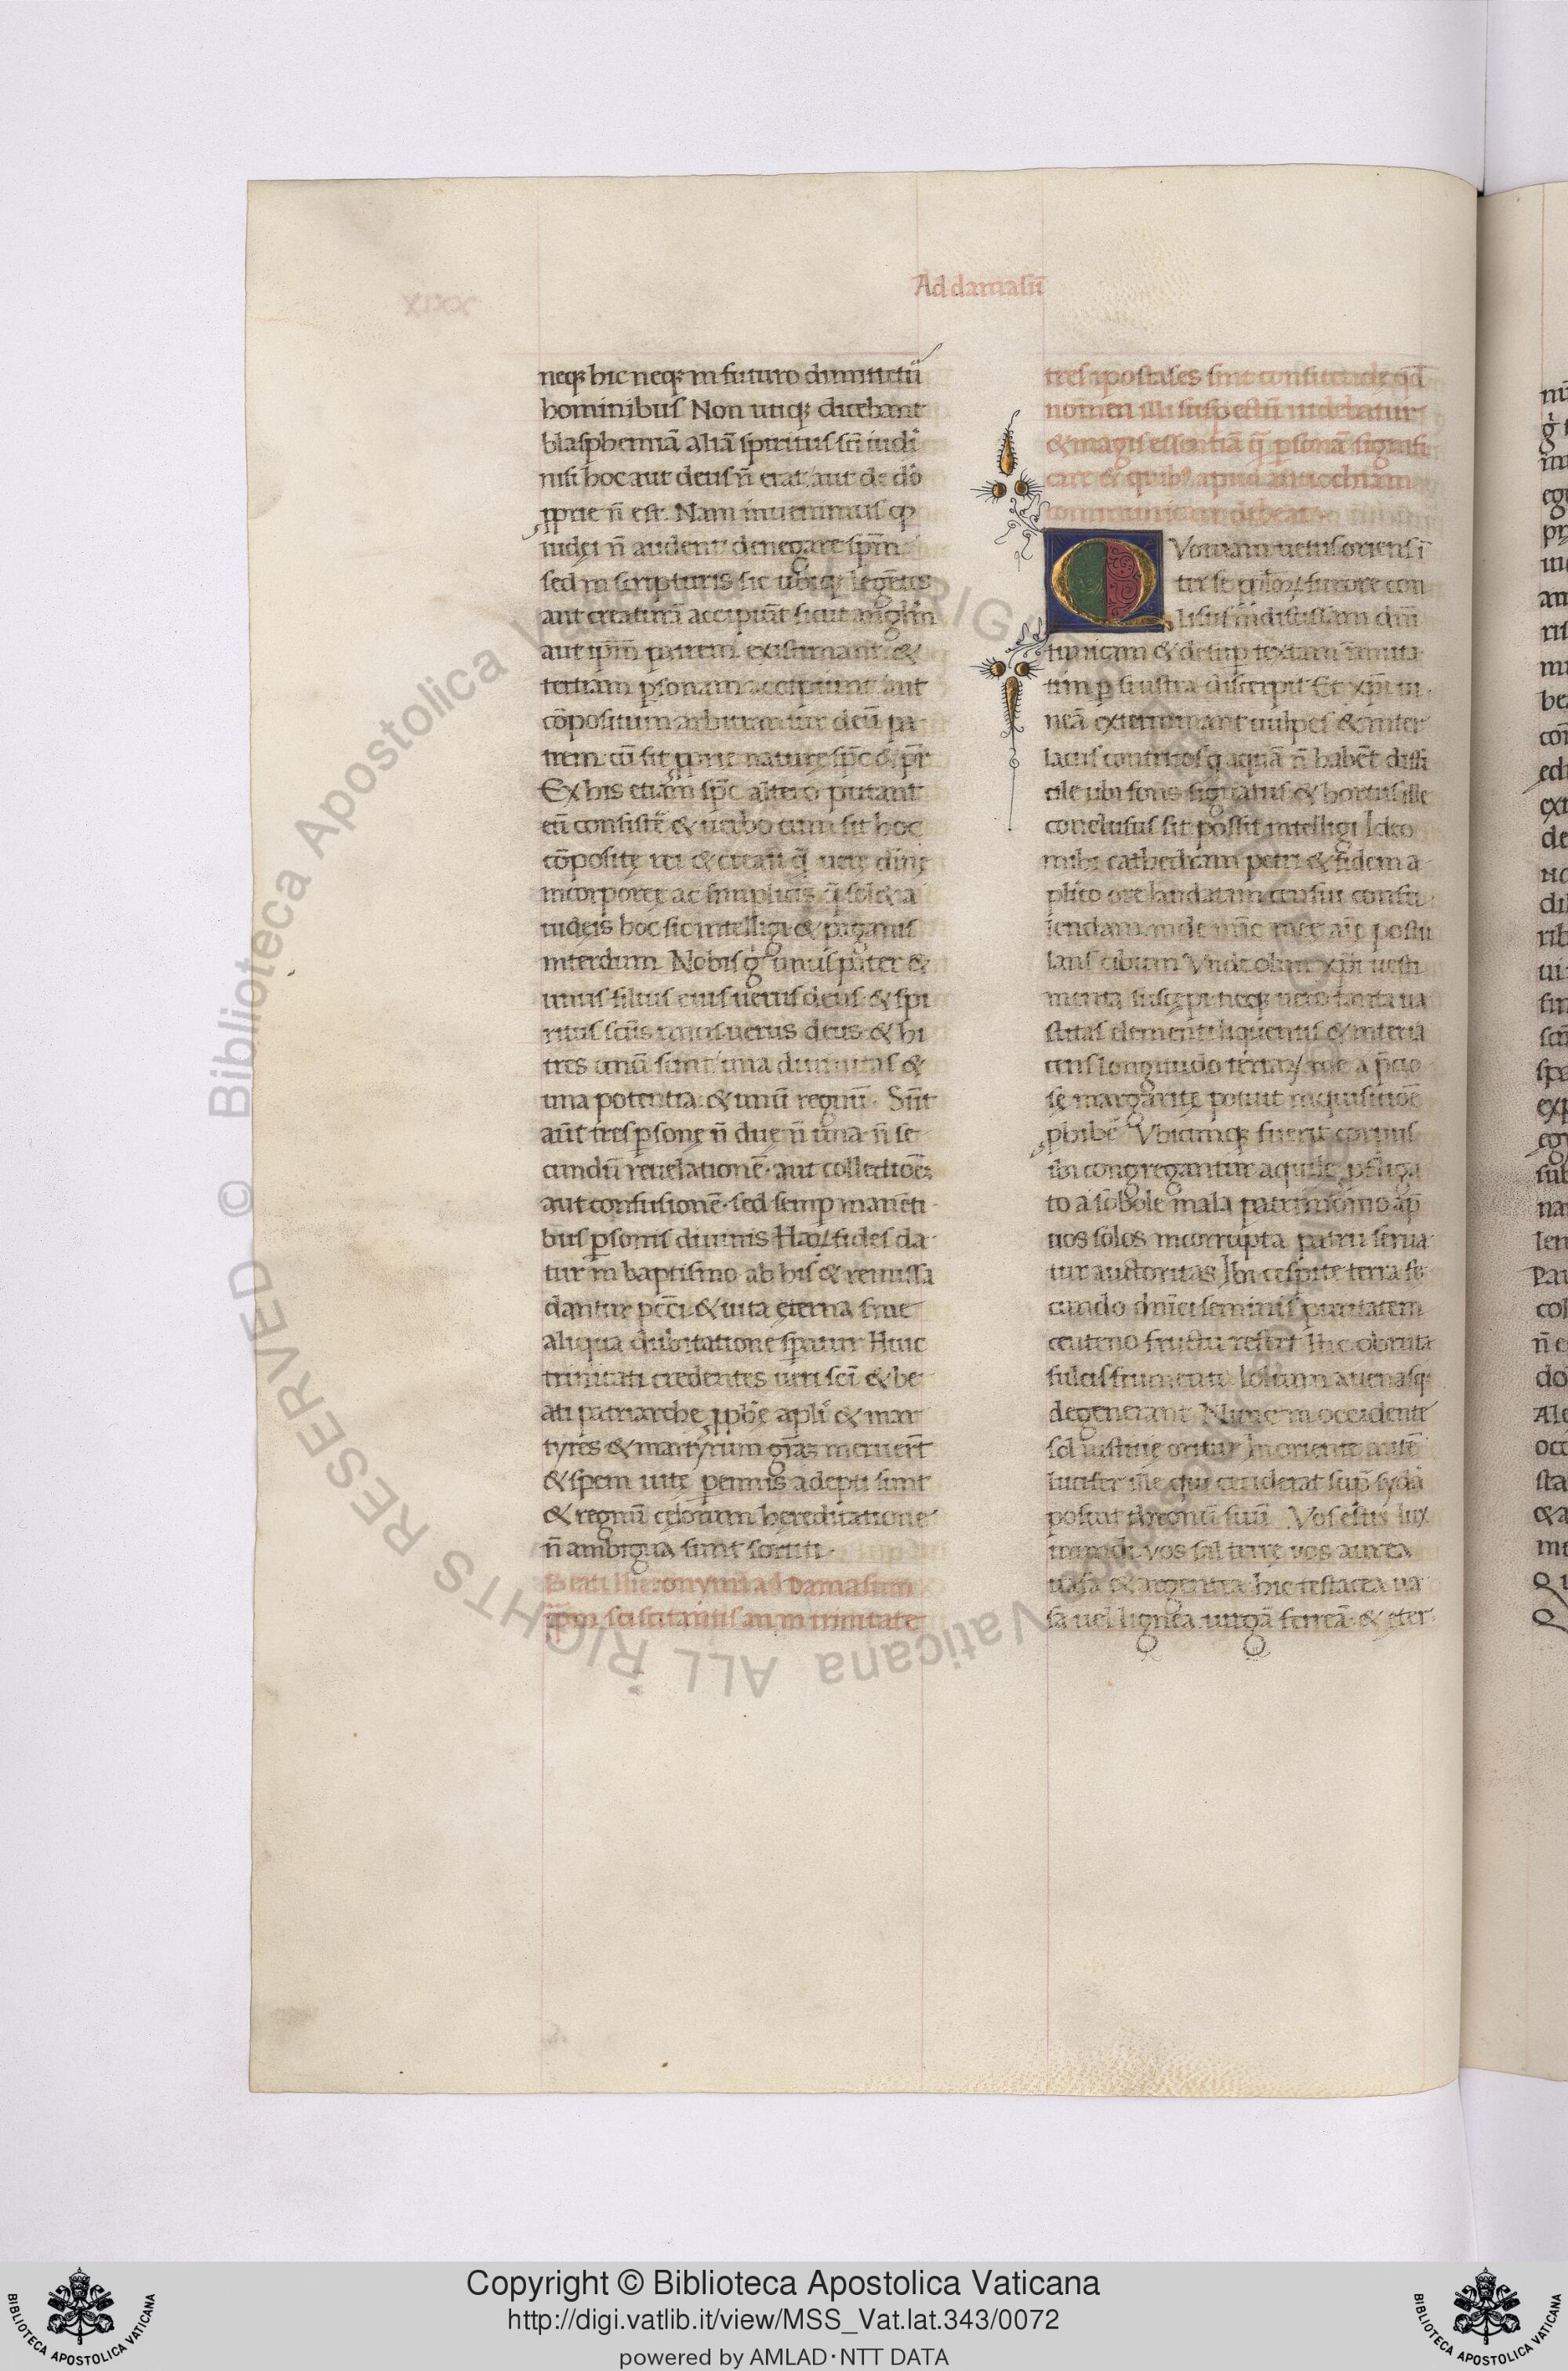 Ad damasū
neqꝫ hic neqꝫ in futuro dimittetū
hominibus Non utiqꝫ dicebant
blasphemiā aliā spiritus sc̄i iudi
nisi hoc aut deus n̄ erat aut de dō
ꝓprie n̄ est. Nam inuenimus ꝙ
iudęi n̄ audent denegare sp̄m
sed in scripturis sic ubiqꝫ legētes
aut creaturā accipiūt sicut anglm̄
aut ip̄m patrem existimant &
tertiam ꝑsonam accipiunt aut
cōpositum arbitrantur deū pa
trem cū sit ꝓprie naturę sp̄c & pr̄
Ex his etiam sp̄c altero putant
eū consistē & uerbo cum sit hoc
cōpositę rei & creati q̄ uere diuę
incorporeę ac simplicis
iudęis hoc sic intelligi & paganis
interdum Nobis g̊ unus pater &
unus filius eius uerus deus & spi
ritus scūs unus uerus deus & hi
tres unū sunt una diuinitas &
una potentia & unū regnū. Sūt
aūt tres ꝑsonę n̄ duę n̄ una n̄ se
cundū reuelationē aut collectiōē
aut confusionē sed semꝑ manēti
bus ꝑsonis diuinis Haꝝ fides da
tur in baptismo ab his & remissa
dantur pcc̄i & uita ęterna sine
aliqua dubitatione sꝑatur Huic
trinitati credentes ueri sc̄i & be
ati patriarche ꝓphę apl̄i & mar
tyres & martyrum gr̄as meruer̄t
& spem uitę ꝑennis adepti sunt
& regnū cęlorum hereditatione
n̄ ambigua sunt sortiti.
Beati Hieronymi ad Damasum
pp̄m sciscitantis an in trinitate
tres ypostases sint consuetude qd̄
nomen illi suspectū uidebatur
& magis essentiā q̄ ꝑsonā signifi
care & quibꝰ apud antiochiam
communicare debeat
Q Voniam uetus oriens ī
ter se ppl̄oꝝ furore con
lisus indiscissam dn̄i
tunicam & desuꝑ textam minuta
tim ꝑ frustra discerpit Et xp̄i ui
neā exterminant uulpes & inter
lacus contritos q̄ aquā n̄ habēt diffi
cile ubi fons signatus & hortus ille
conclusus sit possit intelligi Ideo
mihi cathedram petri & fidem a
plico ore laudatam censui consu
lendam inde nūc meę aīę postu
lans cibum Vnde olim xp̄i uesti
menta suscępi neqꝫ uero tanta ua
stitas elementi liquentis & interia
cens longitudo terraꝝ me a p̄cio
sę margaritę potuit inquisitiōē
ꝓhibē Vbicunqꝫ fuerit corpus
ibi congregantur aquilę ꝓfliga
to a sobole mala patrimonio ap̄
uos solos incorrupta patrū serua
tur auctoritas Ibi cespite terra fe
cundo dn̄ici seminis puritatem
centeno fructu refert Hic obruta
sulcis frumenta lolium auenasqꝫ
degenerant Nunc in occidente
sol iustitię oritur In oriente autē
lucifer ille qui ceciderat supra syda
posuit thronū suū Vos estis lux
mundi vos sal terrę vos aurea
uasa & argentea hic testacea ua
sa uel lignea uirgā ferreā & eter
© Biblioteca Apostolica Vaticana ALL RIGHTS RESERVED
Copyright © Biblioteca Apostolica Vaticana
http://digi.vatlib.it/view/MSS_Vat.lat.343/0072
powered by AMLAD·NTT DATA
BIBLIOTECA APOSTOLICA VATICANA
BIBLIOTECA APOSTOLICA VATICANA